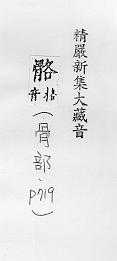 精嚴新集大藏音
骼
格音
(骨部、p719)